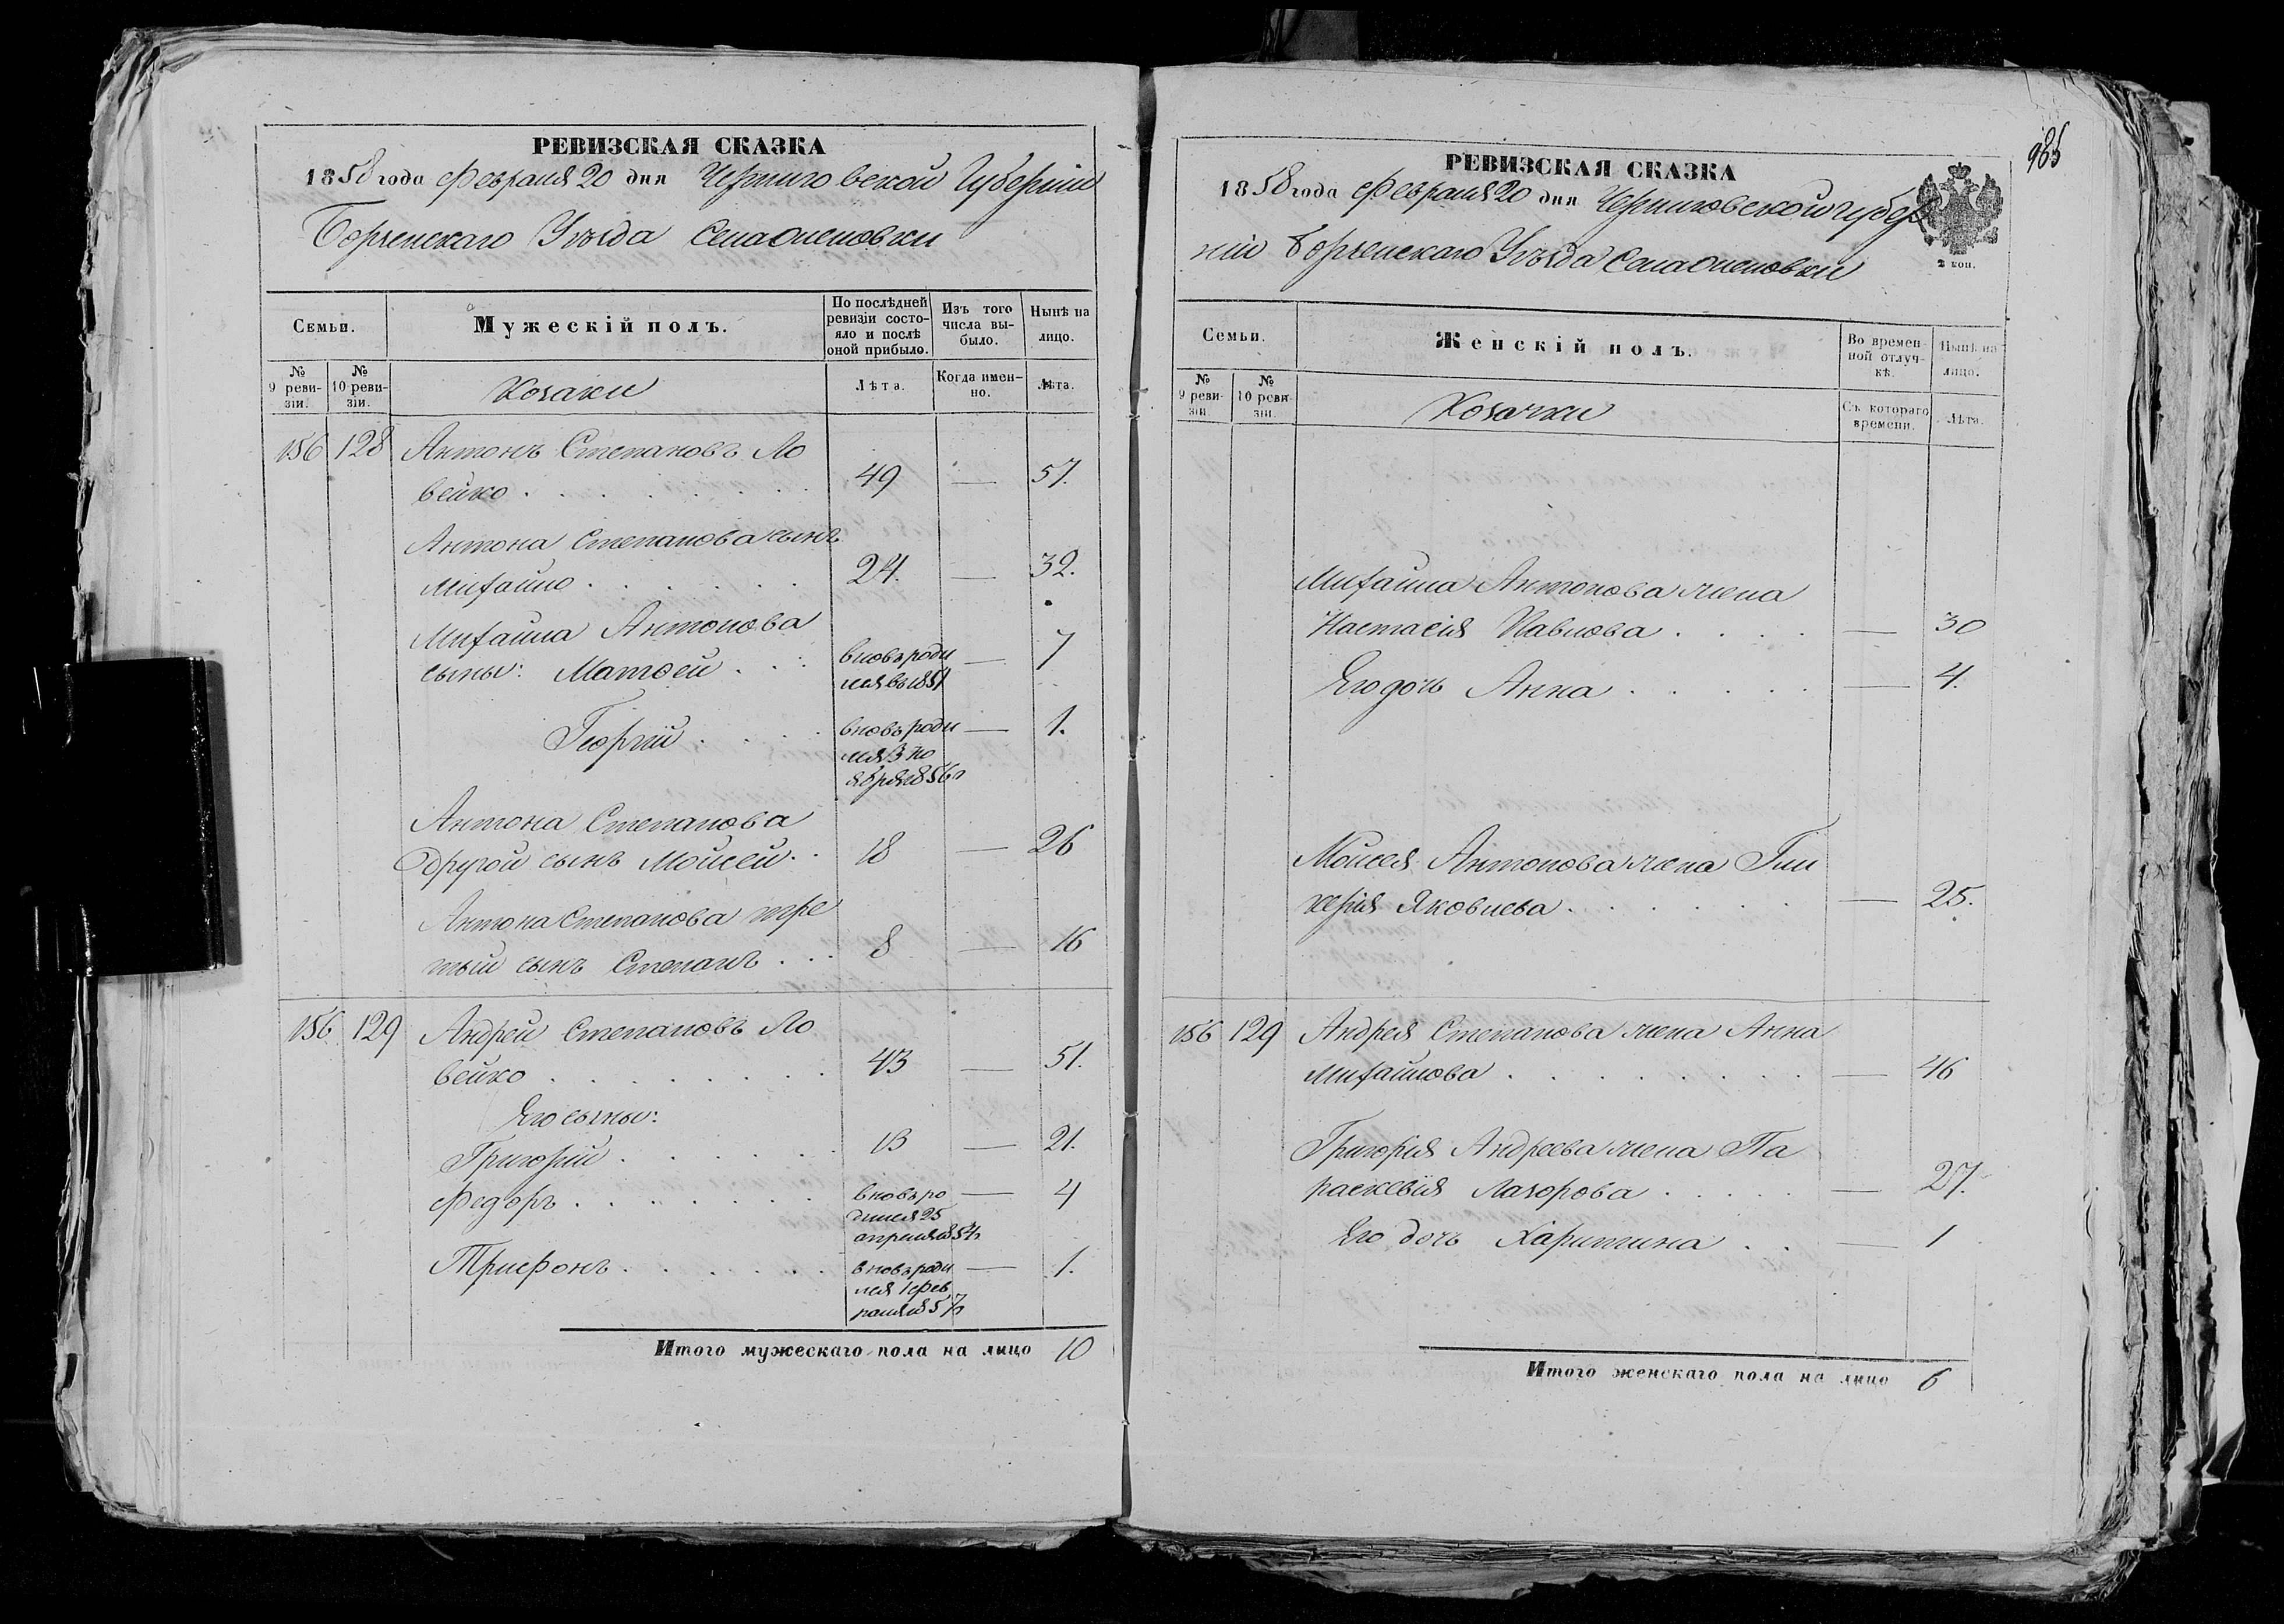 РЕВИЗСКАЯ СКАЗКА
1858 года Февраля 20 дня Черниговской Губернии
Борзенскаго Уѣзда Села Оленовки
Семьи.
Мужескій полъ.
По послѣдней ревизіи состояло и послѣ оной прибыло.
Изъ того числа выбыло.
Нынѣ на лицо.
№ 9 ревизіи.
№ 10 ревизіи.
Козаки
Лѣта.
Когда именно.
Лѣта.
156 128 Антонъ Степановъ Ло
вейко . . . 49 — 57.
Антона Степанова сынъ
Михайло . . . 24. — 32.
Михайла Антонова
сыны: Матвей . . . вновь роди — 7
лся въ 1851
Георгий . . . вновь роди — 1.
лся в но
ября 1856 г
Антона Степанова
другой сынъ Мойсей . . 18 — 26
Антона Степанова тре
тый сынъ Степанъ . . . 8 — 16
156 129 Андрей Степановъ Ло
вейко . . . 43 — 51.
Его сыны:
Григорий . . . 13 — 21.
Федоръ . . . вновь ро — 4
дился 25
апреля 1854 г
Трифонъ . . . вновь роди — 1.
лся 1 фев
раля 1857 г
Итого мужескаго пола на лицо 10
985
РЕВИЗСКАЯ СКАЗКА
1858 года Февраля 20 дня Черниговской Губер
ніи Борзенскаго Уѣзда Села Оленовки
2 коп.
Семьи.
Женскій полъ.
Во временной отлучкѣ.
Нынѣ на лицо.
№ 9 ревизіи.
№ 10 ревизіи.
Козачки
Съ котораго времени.
Лѣта.
Михайла Антонова жена
Настасія Павлова . . . — 30
Его дочь Анна . . . — 4.
Мойсея Антонова жена Гли
керия Яковлева . . . — 25.
156 129 Андрея Степанова жена Анна
Михайлова . . . — 46
Григория Андреева жена Па
раскевия Лазорова . . . — 27.
Его дочь Харитина . . — 1
Итого женскаго пола на лицо 6